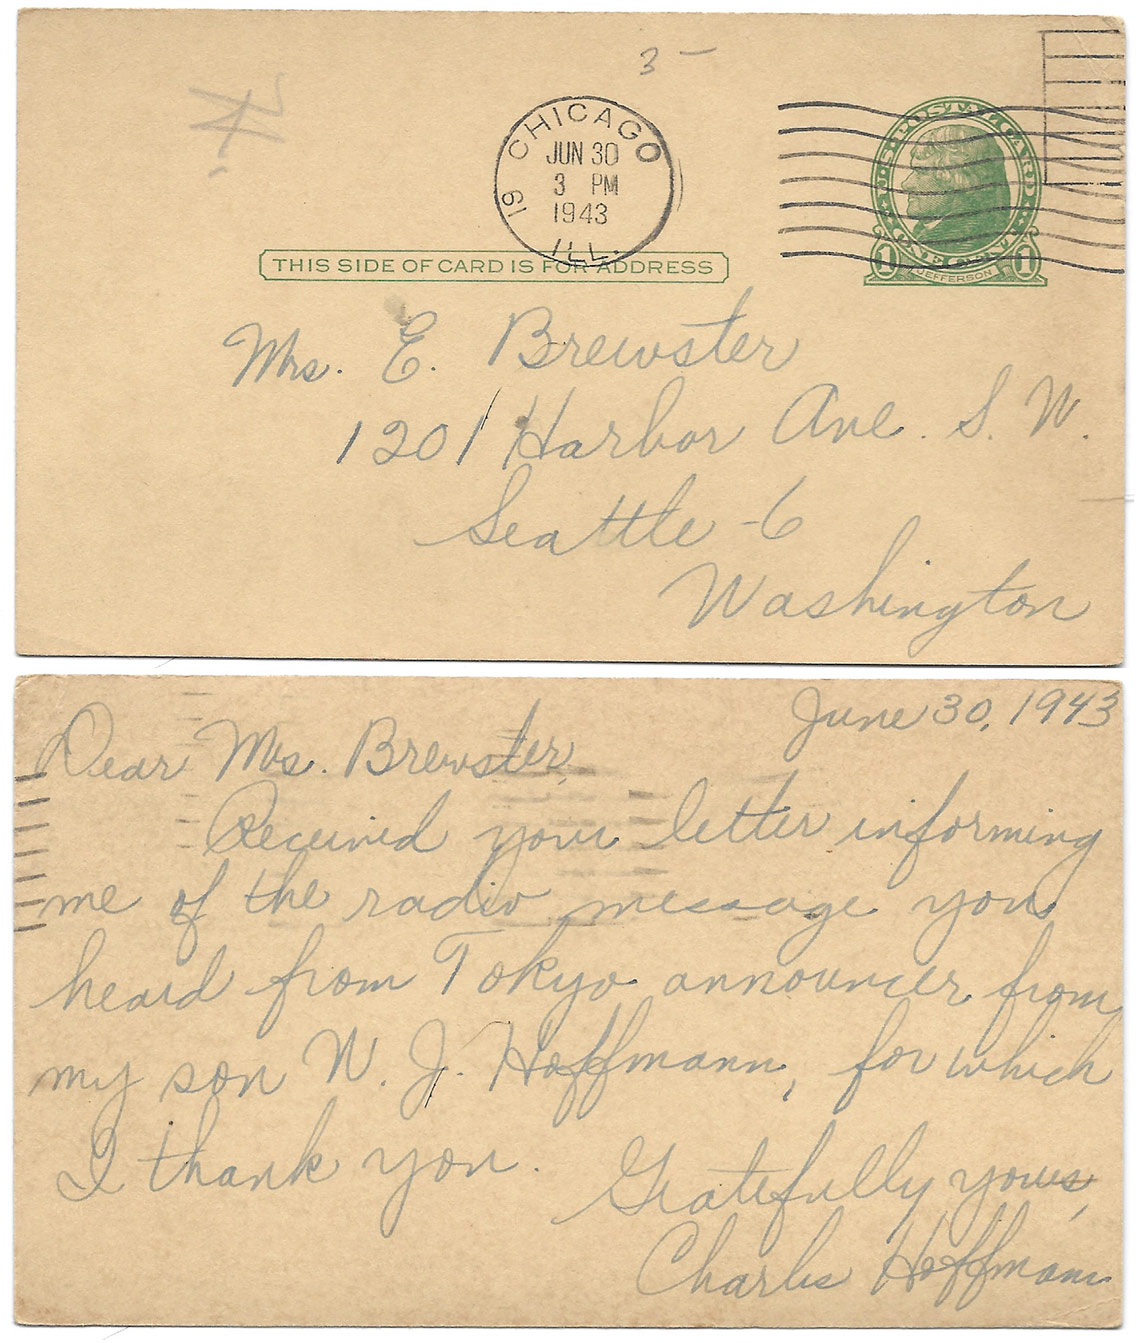 3 —
CHICAGO
19
JUN 30
3 PM
1943
ILL.
U.S. POSTAL CARD
1 1
JEFFERSON
THIS SIDE OF CARD IS FOR ADDRESS
Mrs. E. Brewster
1201 Harbor Ave. S. W.
Seattle - 6
Washington
June 30, 1943
Dear Mrs. Brewster,
Received your letter informing
me of the radio message you
heard from Tokyo announcer from
my son W. J. Hoffmann, for which
I thank you.
Gratefully yours,
Charles Hoffmann